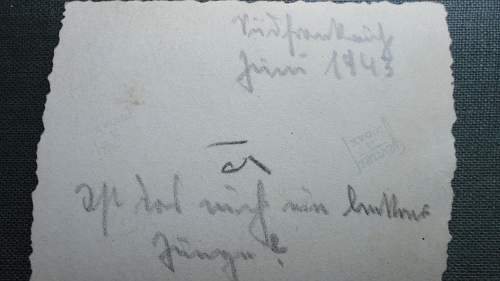 Südfrankreich
Juni 1943
Ist das nicht ein
Junge?